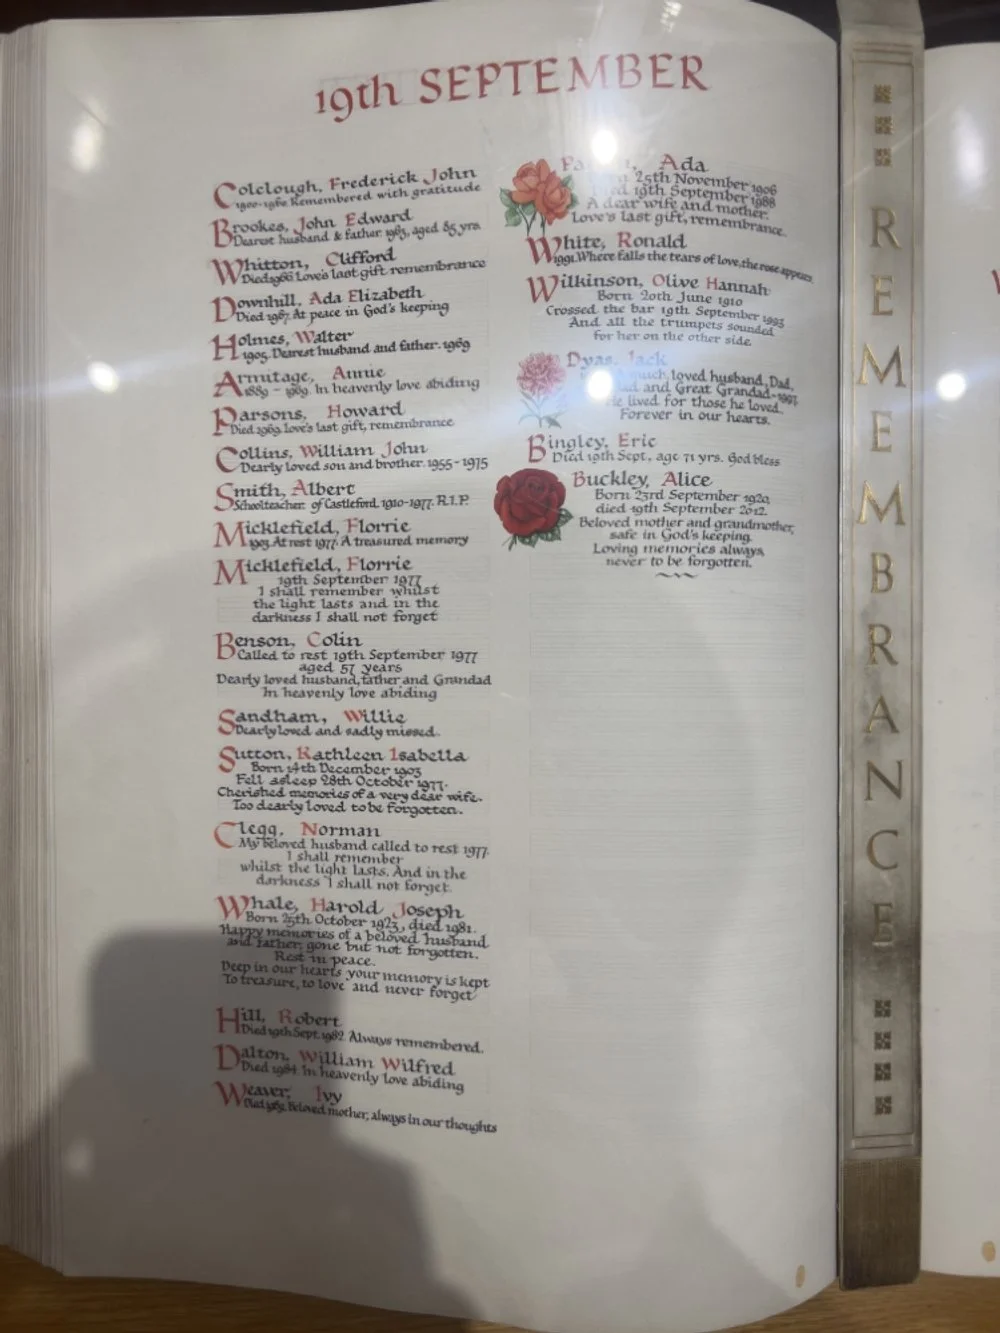 19th SEPTEMBER
Colclough, Frederick John
1900-1960. Remembered with gratitude
Brookes, John Edward
Dearest husband & father. 1963, aged 85 yrs
Whitton, Clifford
Died 1966. Love's last gift remembrance
Downhill, Ada Elizabeth
Died 1967. At peace in God's keeping
Holmes, Walter
1905. Dearest husband and father. 1969
Armitage, Annie
1889 - 1969. In heavenly love abiding
Parsons, Howard
Died 1969. love's last gift, remembrance
Collins, William John
Dearly loved son and brother. 1955-1975
Smith, Albert
Schoolteacher of Castleford. 1910-1977. R.I.P.
Micklefield, Florrie
1903. At rest 1977. A treasured memory
Micklefield, Florrie
19th September 1977
I shall remember whilst
the light lasts and in the
darkness I shall not forget
Benson, Colin
Called to rest 19th September 1977
aged 57 years
Dearly loved husband, father and Grandad
In heavenly love abiding
Sandham, Willie
Dearly loved and sadly missed.
Sutton, Kathleen Isabella
Born 14th December 1903
Fell asleep 28th October 1977.
Cherished memories of a very dear wife.
Too dearly loved to be forgotten.
Clegg, Norman
My beloved husband called to rest 1977.
I shall remember
whilst the light lasts. And in the
darkness I shall not forget.
Whale, Harold Joseph
Born 25th October 1923, died 1981.
Happy memories of a beloved husband
and father, gone but not forgotten.
Rest in peace.
Deep in our hearts your memory is kept
To treasure, to love and never forget
Hill, Robert
Died 19th Sept. 1982. Always remembered.
Dalton, William Wilfred
Died 1984. In heavenly love abiding
Weaver, Ivy
Died Beloved mother, always in our thoughts
Ada
25th November 1906
19th September 1988
A dear wife and mother.
Love's last gift, remembrance.
White, Ronald
1991. Where falls the tears of love, the rose appears
Wilkinson, Olive Hannah
Born 20th June 1910
Crossed the bar 19th September 1995
And all the trumpets sounded
for her on the other side.
Dyas, Jack
much loved husband, Dad,
and Great Grandad - 1997.
He lived for those he loved.
Forever in our hearts.
Bingley, Eric
Died 19th Sept, age 71 yrs. God bless
Buckley, Alice
Born 23rd September 1920,
died 19th September 2012.
Beloved mother and grandmother,
safe in God's keeping.
Loving memories always,
never to be forgotten.
REMEMBRANCE